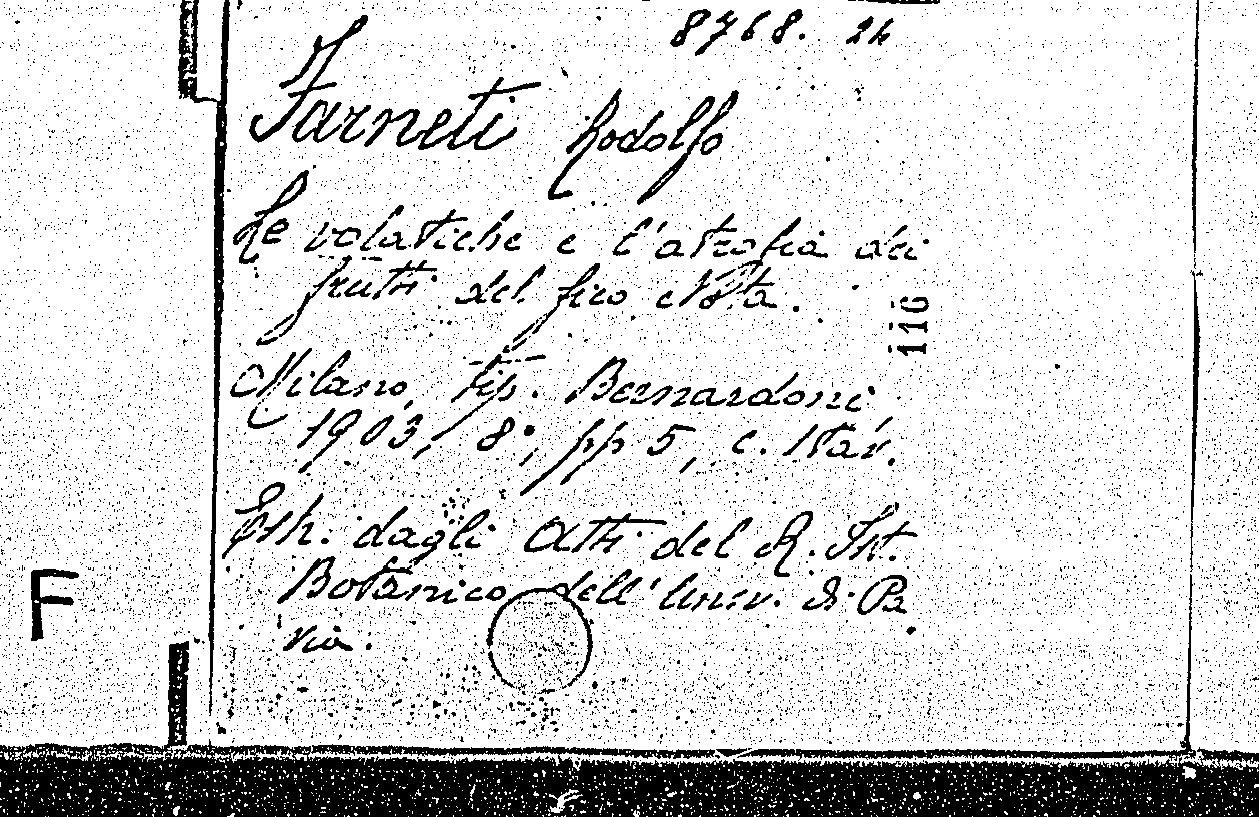 8768. 24
Farneti Rodolfo
Le volatiche e l'atrofia dei
frutti del fico Nota.
110
Milano, tip. Bernardoni,
1903, 8°, pp 5, c. 1 tav.
Estr. dagli Atti del R. Ist.
Botanico dell'Univ. di Pa
via.
F